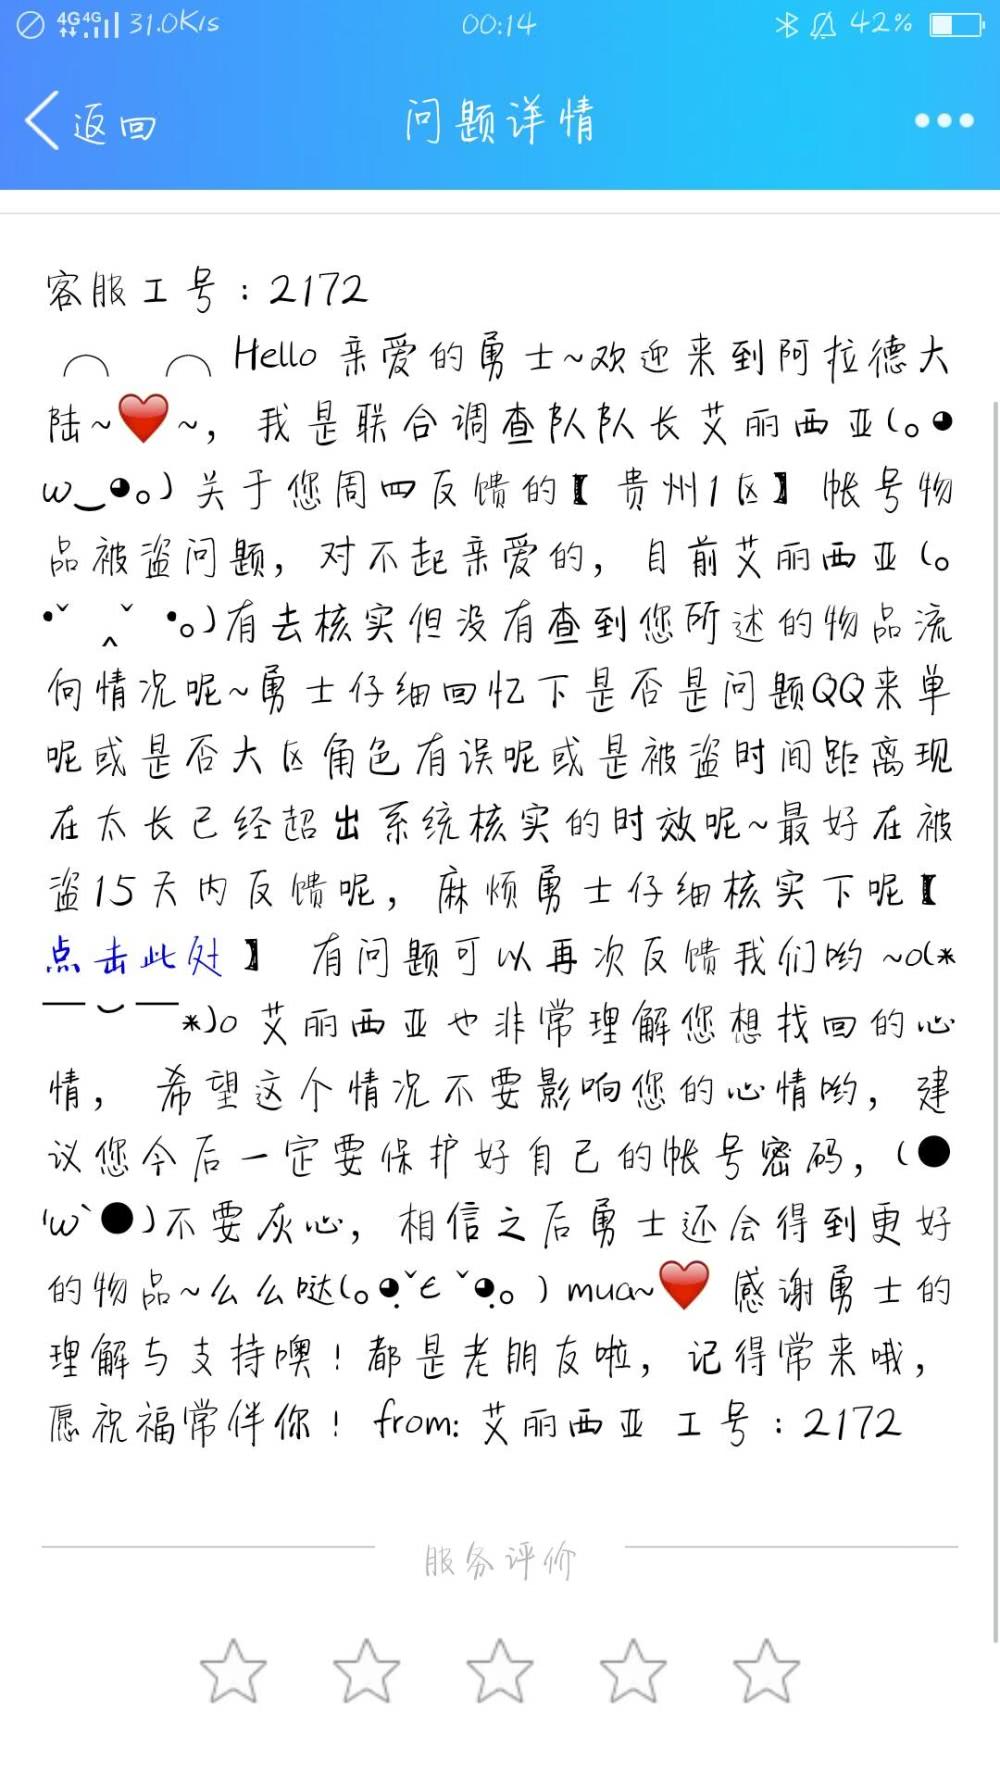 4G 4G 31.0K/s 00:14 42%
返回 问题详情
客服工号：2172
⌒ ⌒ Hello 亲爱的勇士~欢迎来到阿拉德大
陆~❤~，我是联合调查队队长艾丽西亚(｡◕
ω‿◕｡) 关于您周四反馈的【 贵州1区】 帐号物
品被盗问题，对不起亲爱的，目前艾丽西亚 (｡
•ˇ‸ˇ•｡)有去核实但没有查到您所述的物品流
向情况呢~勇士仔细回忆下是否是问题QQ来单
呢或是否大区角色有误呢或是被盗时间距离现
在太长已经超出系统核实的时效呢~最好在被
盗15天内反馈呢，麻烦勇士仔细核实下呢【
点击此处】 有问题可以再次反馈我们哟 ~o(*
￣︶￣*)o 艾丽西亚也非常理解您想找回的心
情， 希望这个情况不要影响您的心情哟，建
议您今后一定要保护好自己的帐号密码，(●
'ω`●)不要灰心，相信之后勇士还会得到更好
的物品~么么哒(｡◕ˇεˇ◕｡ ) mua~❤ 感谢勇士的
理解与支持噢！都是老朋友啦，记得常来哦，
愿祝福常伴你！ from: 艾丽西亚 工号：2172
服务评价